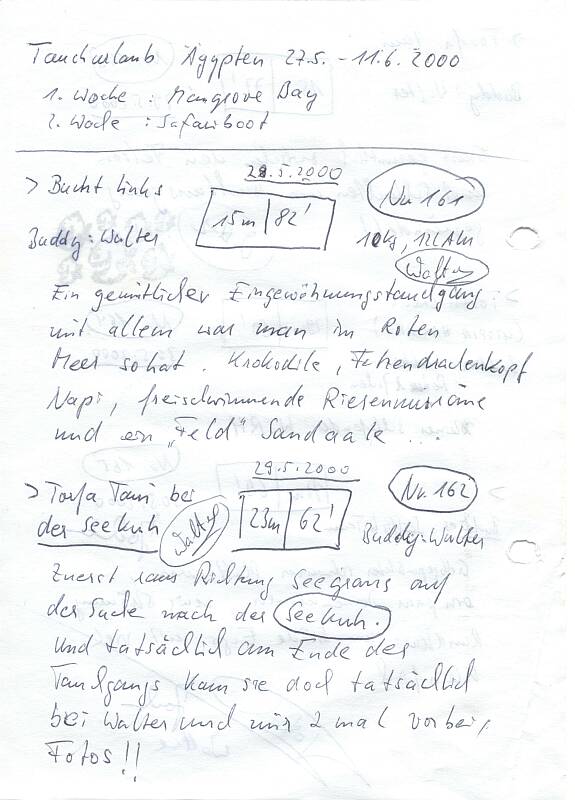 Tauchurlaub Ägypten 27.5. - 11.6.2000
1. Woche : Mangrove Bay
2. Woche : Safariboot
28.5.2000
> Bucht links
15m | 82'
Nr. 161
Buddy: Walter
10kg, 12l Alu
Walter
Ein gemütlicher Eingewöhnungstauchgang
mit allem was man im Roten
Meer so hat. Krokodile, Fetzendrachenkopf
Napi, freischwimmende Riesenmuräne
und ein "Feld" Sandaale...
29.5.2000
> Torfa Tani bei
der Seekuh
Walter
23m | 62'
Nr. 162
Buddy: Walter
Zuerst raus Richtung Seegras auf
der Suche nach der Seekuh.
Und tatsächlich am Ende des
Tauchgangs kam sie doch tatsächlich
bei Walter und mir 2 mal vorbei,
Fotos!!